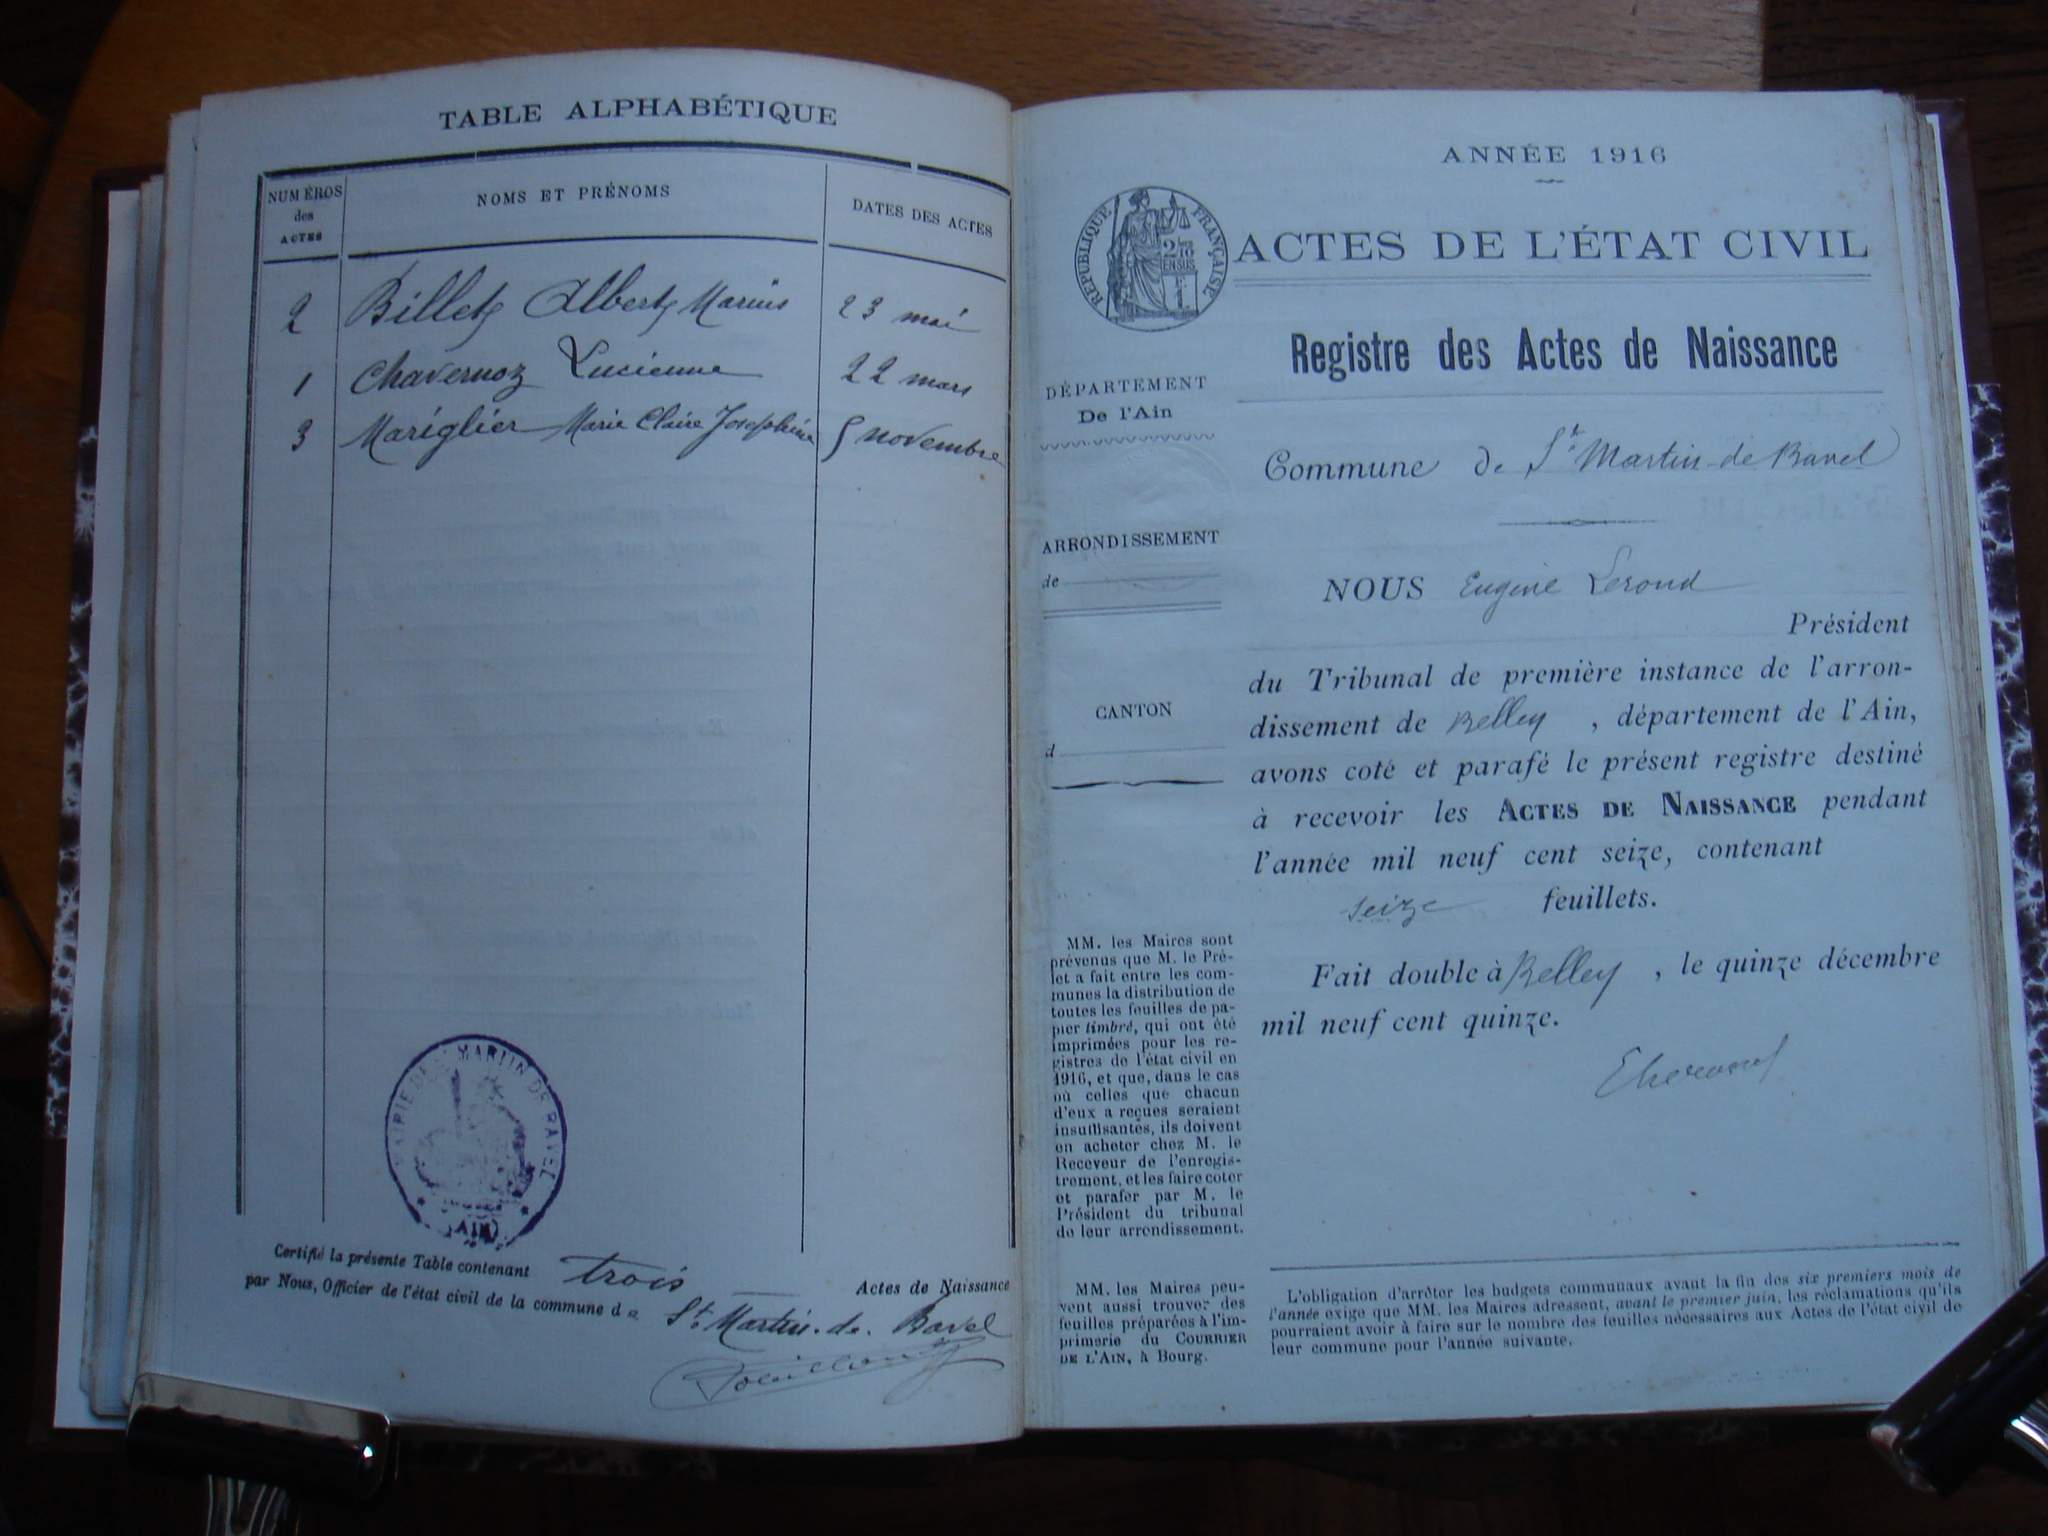 TABLE ALPHABÉTIQUE
NUMÉROS des ACTES NOMS ET PRÉNOMS DATES DES ACTES
2 Billet Albert Marius 23 mai
1 Chavernoz Lucienne 22 mars
3 Mariglier Marie Claire Josephine 5 novembre
MAIRIE DE ST MARTIN DE BAVEL
(AIN)
Certifié la présente Table contenant trois Actes de Naissance
par Nous, Officier de l'état civil de la commune de St Martin-de-Bavel
ANNÉE 1916
RÉPUBLIQUE FRANÇAISE
2/10 EN SUS
1F
ACTES DE L'ÉTAT CIVIL
Registre des Actes de Naissance
DÉPARTEMENT
De l'Ain
Commune de St Martin-de-Bavel
ARRONDISSEMENT
de
CANTON
d
NOUS Eugène
Président
du Tribunal de première instance de l'arron-
dissement de Belley, département de l'Ain,
avons coté et parafé le présent registre destiné
à recevoir les ACTES DE NAISSANCE pendant
l'année mil neuf cent seize, contenant
seize feuillets.
Fait double à Belley, le quinze décembre
mil neuf cent quinze.
MM. les Maires sont
prévenus que M. le Pré-
fet a fait entre les com-
munes la distribution de
toutes les feuilles de pa-
pier timbré, qui ont été
imprimées pour les re-
gistres de l'état civil en
1916, et que, dans le cas
où celles que chacun
d'eux a reçues seraient
insuffisantes, ils doivent
en acheter chez M. le
Receveur de l'enregis-
trement, et les faire coter
et parafer par M. le
Président du tribunal
de leur arrondissement.
MM. les Maires peu-
vent aussi trouver des
feuilles préparées à l'im-
primerie du COURRIER
DE L'AIN, à Bourg.
L'obligation d'arrêter les budgets communaux avant la fin des six premiers mois de
l'année exige que MM. les Maires adressent, avant le premier juin, les réclamations qu'ils
pourraient avoir à faire sur le nombre des feuilles nécessaires aux Actes de l'état civil de
leur commune pour l'année suivante.